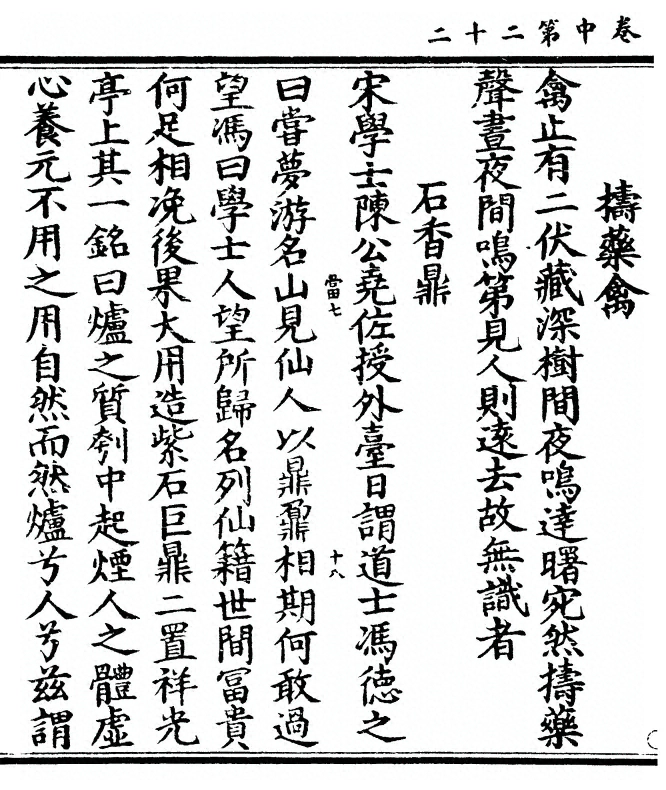 卷中第二十二
擣藥禽
禽止有二伏藏深樹間夜鳴達曙宛然擣藥
聲晝夜間鳴第見人則遠去故無識者
石香鼎
宋學士陳公堯佐授外臺日謂道士馮德之
當七
十八
曰嘗夢游名山見仙人以鼎鼐相期何敢過
望馮曰學士人望所歸名列仙籍世間冨貴
何足相凂後果大用造紫石巨鼎二置祥光
亭上其一銘曰爐之質刳中起煙人之體虛
心養元不用之用自然而然爐兮人兮兹謂